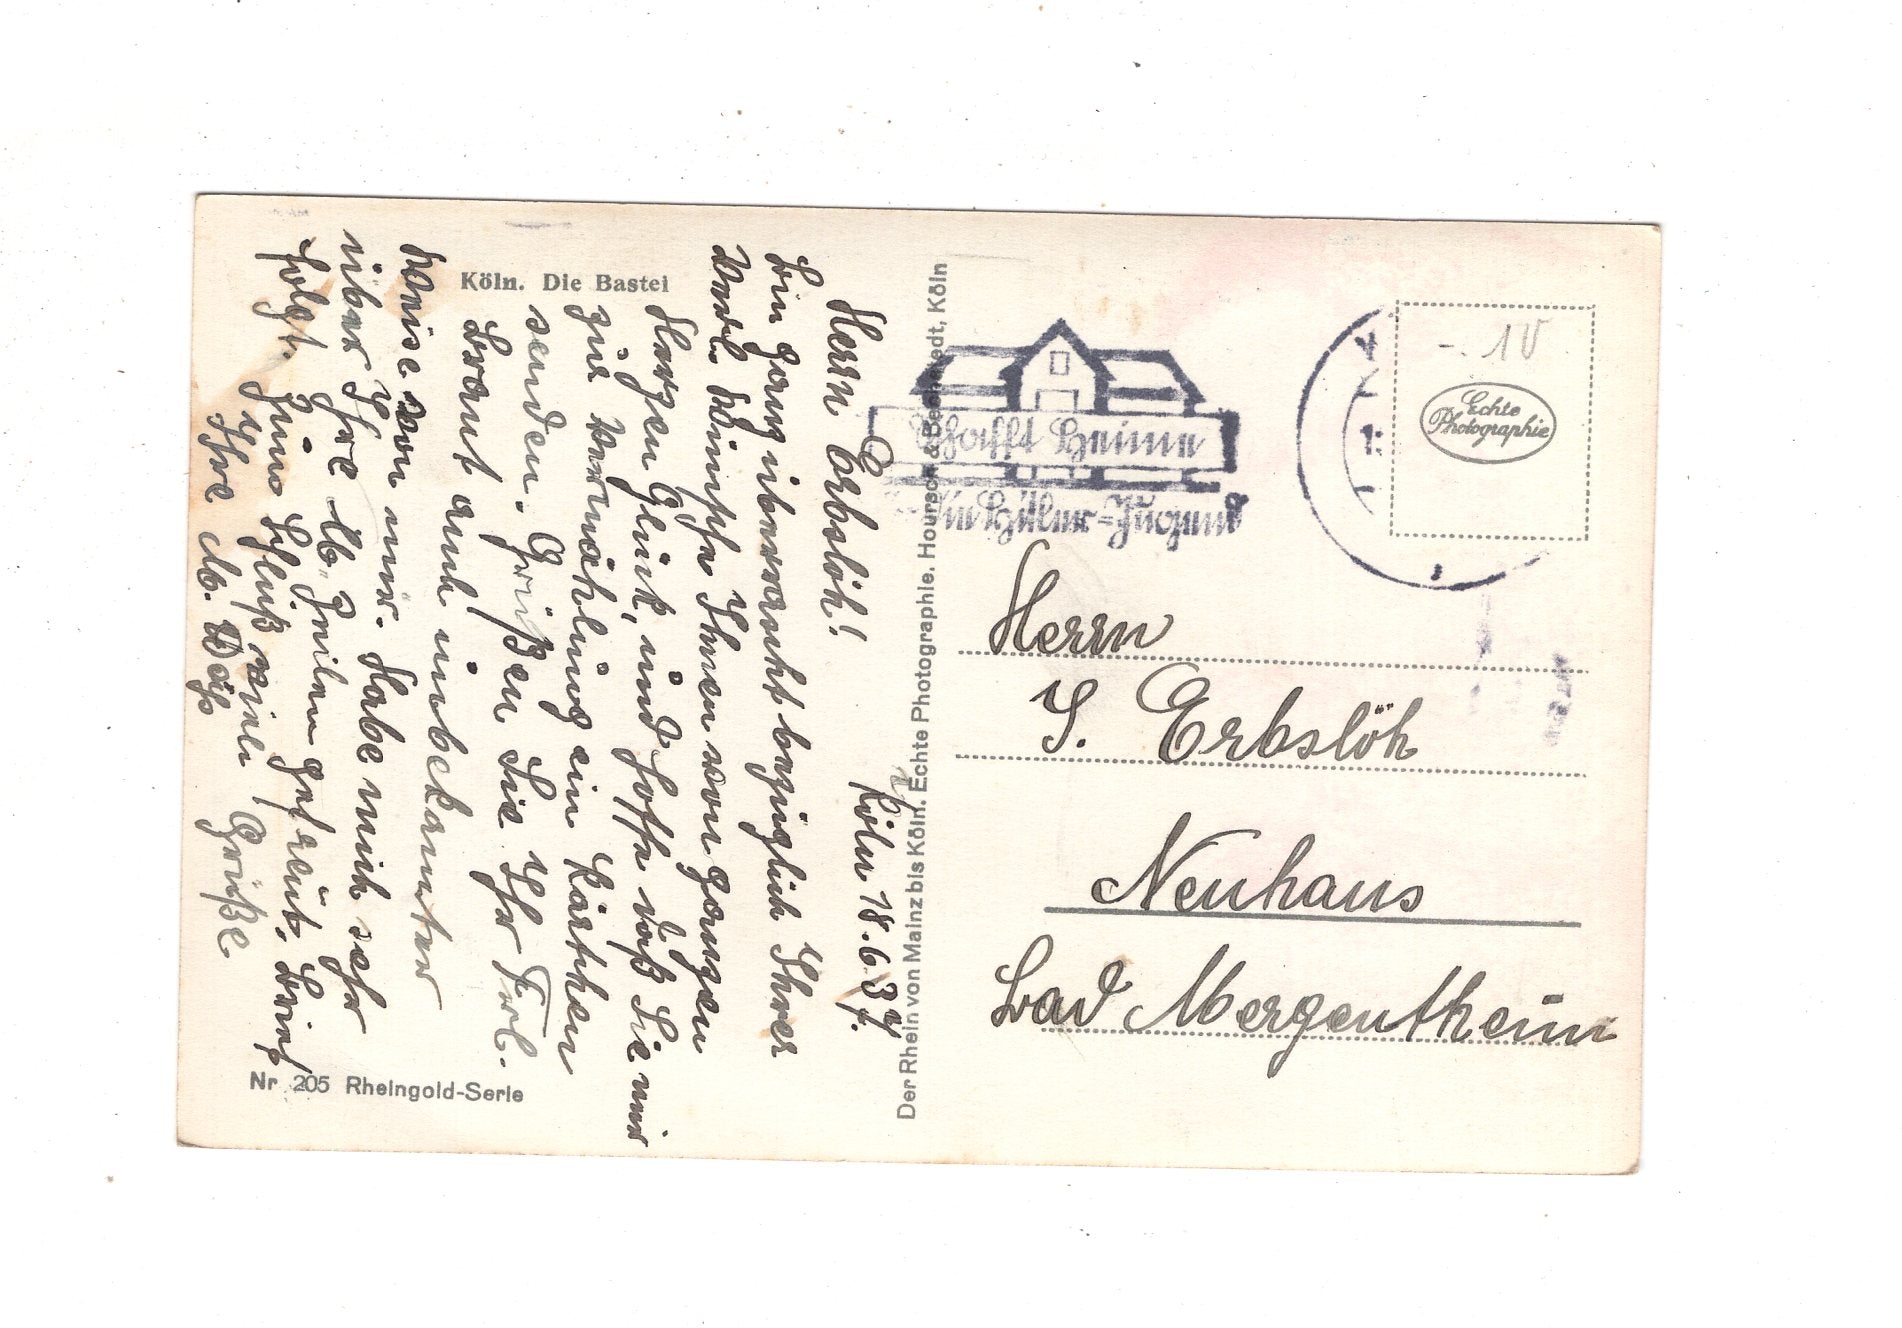 Köln. Die Bastei
Köln 18.6.37.
Herrn Erbslöh!
Bin ganz überrascht bezüglich Ihrer
Verl. Wünsche Ihnen von ganzen
Herzen Glück, und hoffe daß Sie mir
zur Vermählung ein Kärtchen
senden. Grüßen Sie Ihr Frl.
Braut auch unbekannter
weise von mir. Habe mich sehr
über Ihre lb. Zeilen gefreut, Brief
folgt. Zum Schluß viele Grüße
Ihre
Nr. 205 Rheingold-Serie
Der Rhein von Mainz bis Köln. Echte Photographie. Hoursch & Bechstedt, Köln
Schafft Heime
Hitler-Jugend
-.10
Echte
Photographie
Herrn
J. Erbslöh
Neuhaus
Bad Mergentheim